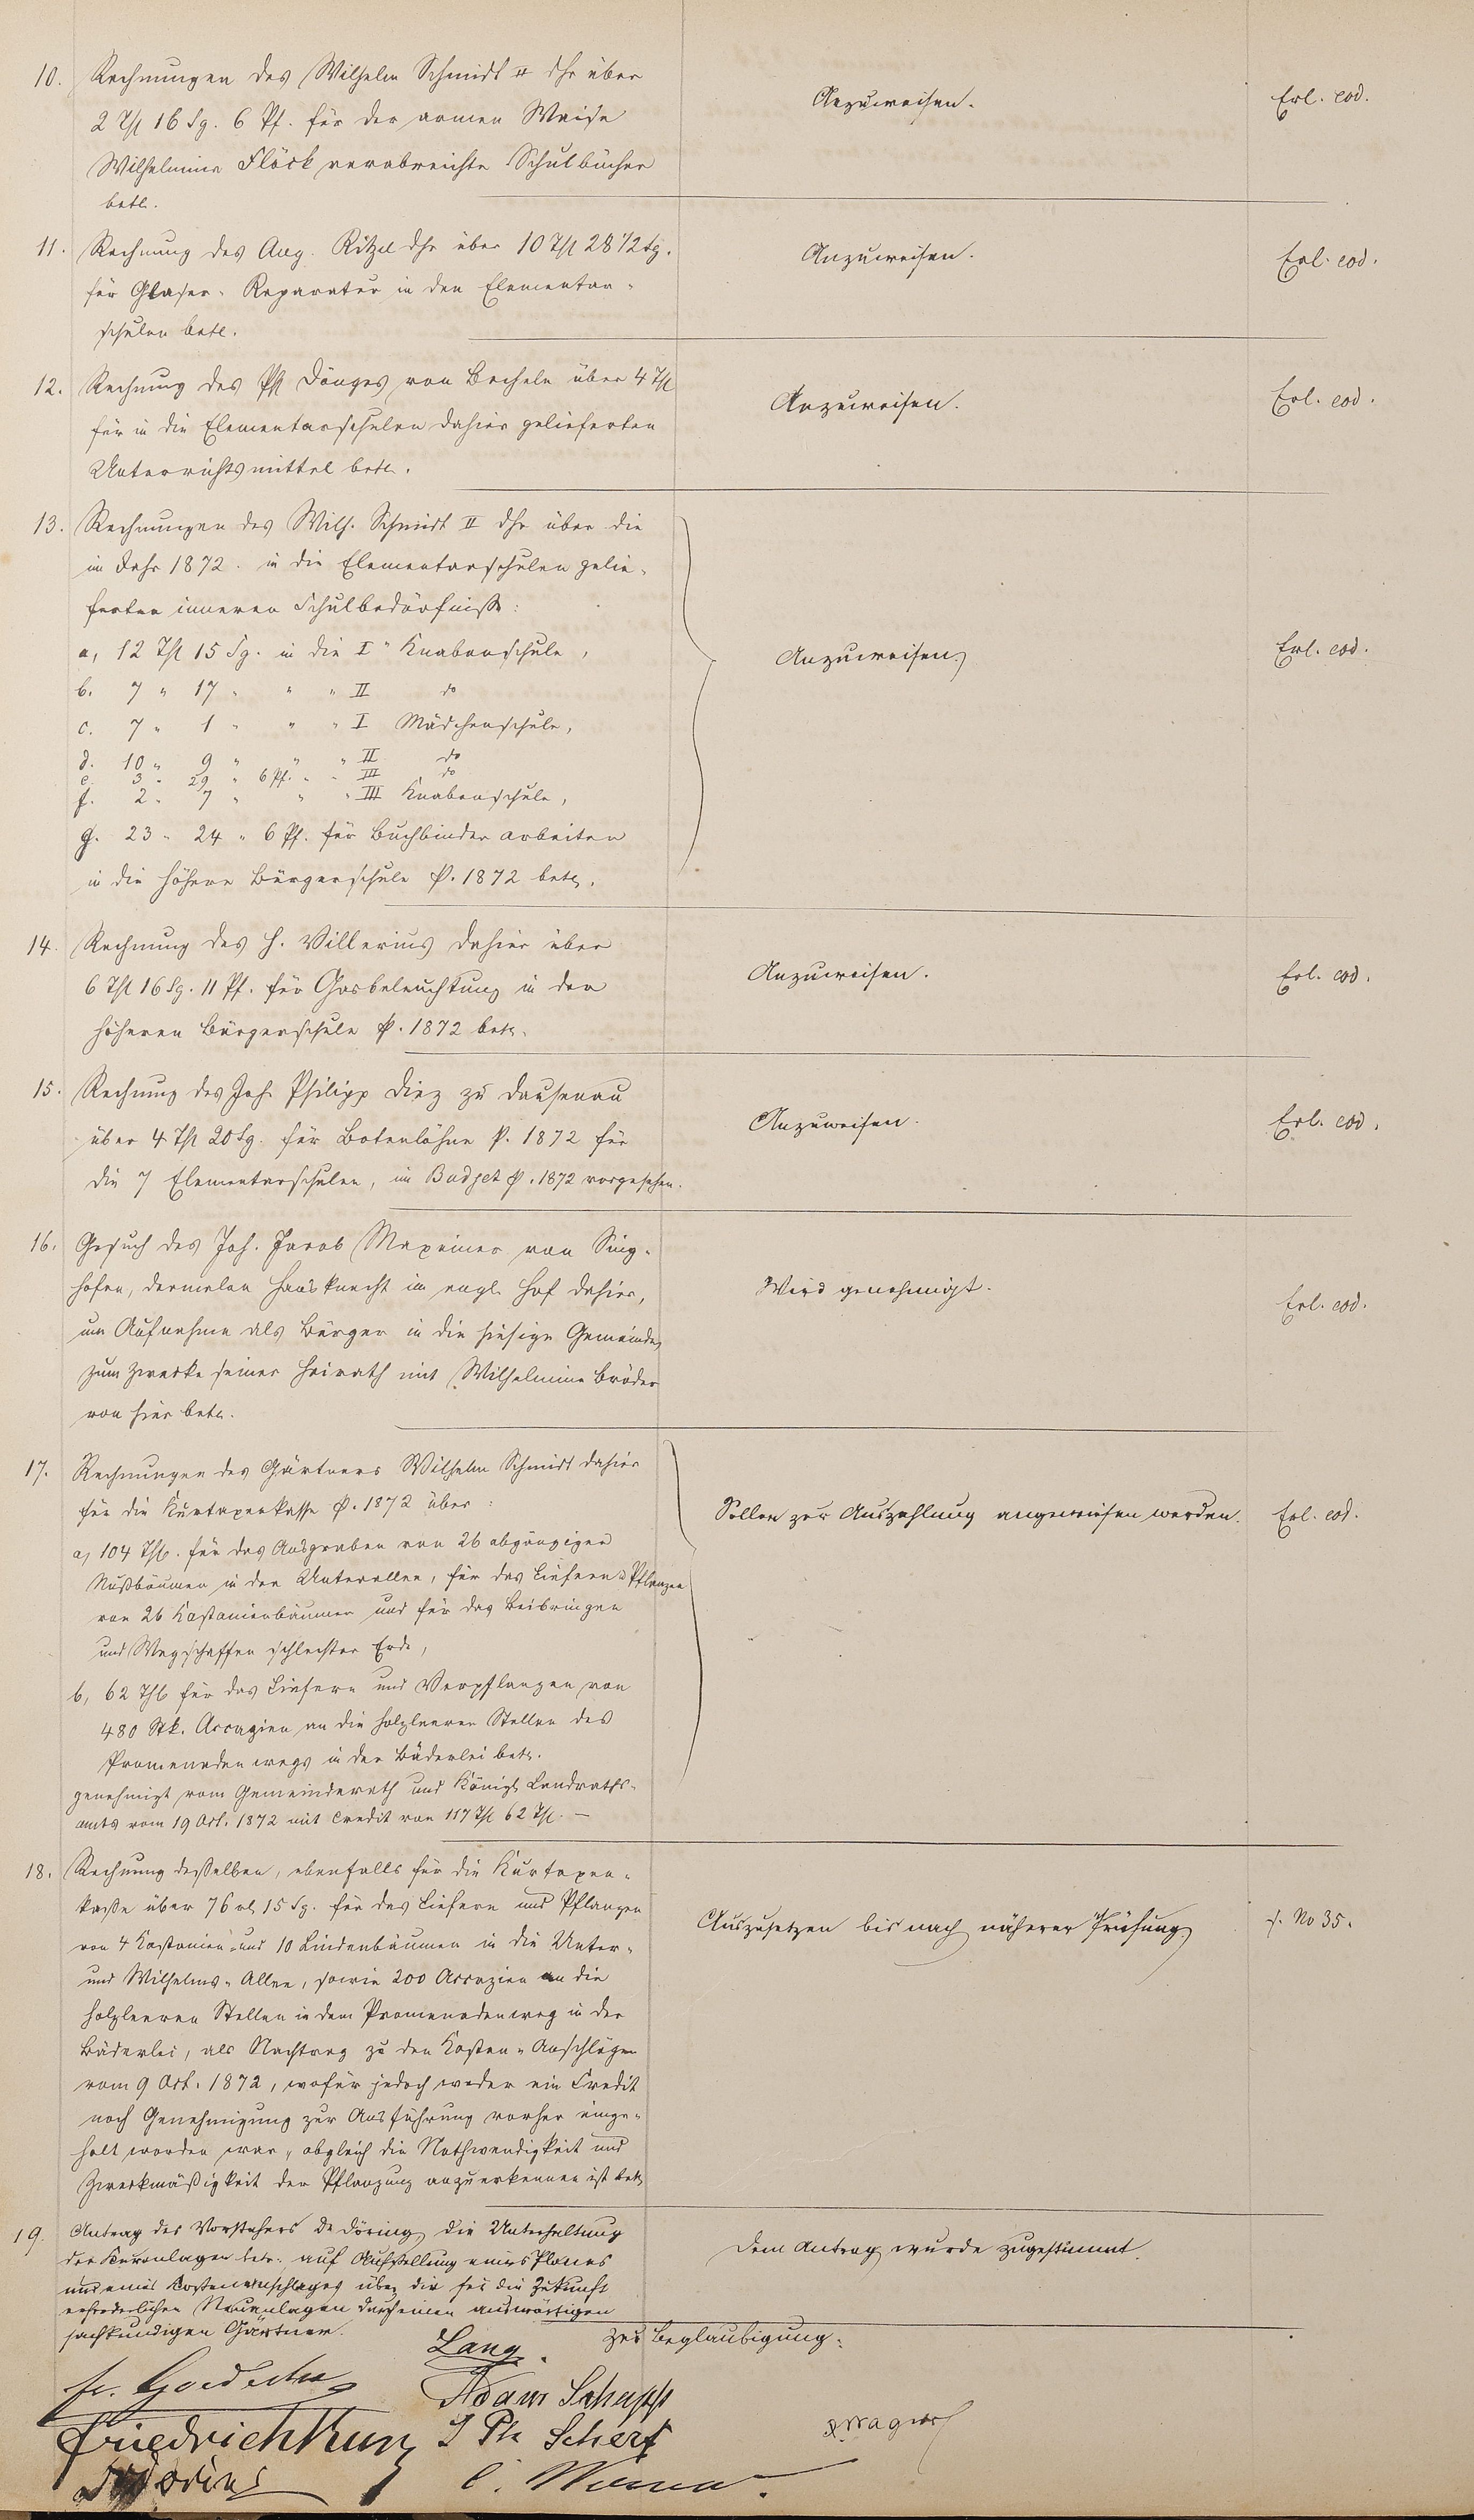 10. Rechnungen des Wilhelm Schmidt II dhr über
2 Thl 16 Sg. 6 Pf. für der armen Waise
Wilhelmine Flöck verabreichte Schulbücher
betr.
Anzuweisen.
Erl. eod.
11. Rechnung des Aug. Ritzel dhr über 10 Thl 28 1/2 Sg.
für Glaser-Reparatur in den Elementar-
schulen betr.
Anzuweisen.
Erl. eod.
12. Rechnung des Ph Dönges von Becheln über 4 Thl
für in die Elementarschulen dahier gelieferten
Unterrichtsmittel betr.
Anzuweisen.
Erl. eod.
13. Rechnungen des Wilh. Schmidt II dhr über die
im Jahr 1872 in die Elementarschulen gelie-
ferten inneren Schulbedürfnisse:
a, 12 Thl 15 Sg. in die I" Knabenschule,
b. 7 " 17 " " " II do
c. 7 " 1 " " " I Mädchenschule,
d. 10 " 9 " " " II do
e. 3 " 29 " 6 Pf. " " III do
f. 2 " 7 " " " III Knabenschule,
g. 23 " 24 " 6 Pf. für Buchbinder arbeiten
in die höhere Bürgerschule p. 1872 betr.
Anzuweisen.
Erl. eod.
14. Rechnung des H. Villerius dahier über
6 Thl 16 Sg. 11 Pf. für Gasbeleuchtung in der
höheren Bürgerschule p. 1872 betr.
Anzuweisen.
Erl. eod.
15. Rechnung des Joh. Philipp Diez zu Dausenau
über 4 Thl 20 Sg. für Botenlöhne p. 1872 für
die 7 Elementarschulen, im Budget p. 1872 vorgesehen.
Anzuweisen.
Erl. eod.
16. Gesuch des Joh. Jacob Maxeiner von Sing-
hofen, dermalen Hausknecht im engl. Hof dahier,
um Aufnahme als Bürger in die hiesige Gemeinde,
zum Zwecke seiner Heirath mit Wilhelmine Bröder
von hier betr.
Wird genehmigt.
Erl. eod.
17. Rechnungen des Gärtners Wilhelm Schmidt dahier
für die Kurtaxenkasse p. 1872 über:
a, 104 Thl. für das Ausgraben von 26 abgängigen
Nußbäumen in der Unterallee, für das Liefern u Pflanzen
von 26 Kastanienbäumen und für das Beibringen
und Wegschaffen schlechter Erde,
b, 62 Thl für das Liefern und Verpflanzen von
480 Stk. Accazien an die holzleeren Stellen des
Promenadenwegs in der Bäderlei betr.
genehmigt vom Gemeinderath und Königl. Landraths-
amts vom 19 Oct. 1872 mit Credit von 117 Thl 62 Thl. —
Sollen zur Auszahlung angewiesen werden.
Erl. eod.
18. Rechnung desselben, ebenfalls für die Kurtaxen-
kasse über 76 rl 15 Sg. für das Liefern und Pflanzen
von 4 Kastanien- und 10 Lindenbäumen in die Unter-
und Wilhelms-Allee, sowie 200 Accazien an die
holzleeren Stellen in dem Promenadenweg in der
Bäderlei, als Nachtrag zu den Kosten-Anschlägen
vom 9 Oct. 1872, wofür jedoch weder ein Credit
noch Genehmigung zur Ausführung vorher einge-
holt worden war, obgleich die Nothwendigkeit und
Zweckmäßigkeit der Pflanzung anzuerkennen ist betr
Auszusetzen bis nach näherer Prüfung.
s. No 35.
19. Antrag des Vorstehers Dr Döring, die Unterhaltung
der Kuranlagen betr. auf Aufstellung eines Planes
und eines Kostenanschlages über die für die Zukunft
erforderlichen Neuanlagen durch einen auswärtigen
sachkundigen Gärtner.
Dem Antrag wurde zugestimmt.
Zur Beglaubigung:
Lang.
Fr. Goedecke
Adam Schupp
Friedrich Kunz
J Ph Scherf
Wagner
Dr Döring